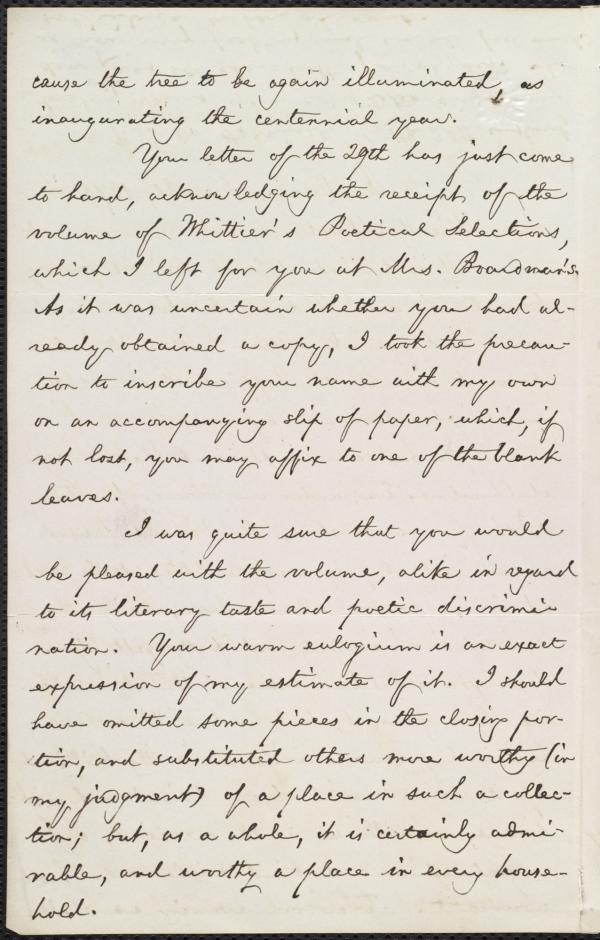 cause the tree to be again illuminated, as
inaugurating the centennial year.
Your letter of the 29th has just come
to hand, acknowledging the receipt of the
volume of Whittier's Poetical Selections,
which I left for you at Mrs. Boardman's.
As it was uncertain whether you had al-
ready obtained a copy, I took the precau-
tion to inscribe your name with my own
on an accompanying slip of paper, which, if
not lost, you may affix to one of the blank
leaves.
I was quite sure that you would
be pleased with the volume, alike in regard
to its literary taste and poetic discrimi-
nation. Your warm eulogium is an exact
expression of my estimate of it. I should
have omitted some pieces in the closing por-
tion, and substituted others more worthy (in
my judgment) of a place in such a collec-
tion; but, as a whole, it is certainly admi-
rable, and worthy a place in every house-
hold.